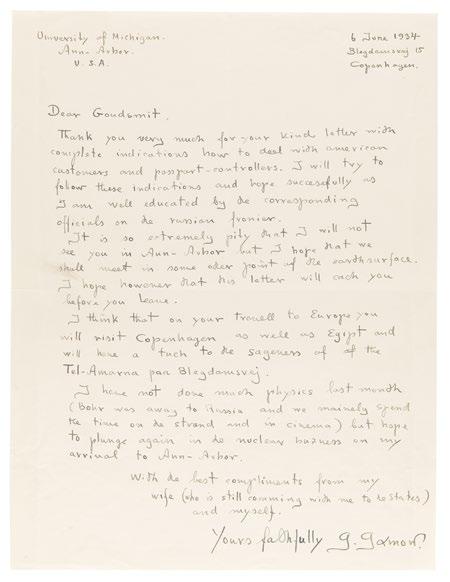 University of Michigan.
Ann-Arbor.
U.S.A.
6 June 1934
Blegdamsvej 15
Copenhagen.
Dear Goudsmit.
Thank you very much for your kind letter with
complete indications how to deal with american
customers and passpart-controllers. I will try to
follow these indications and hope succesefully as
I am well educated by de corresponding
officials on de russian fronier.
It is so extremely pity dat I will not
see you in Ann-Arbor but I hope dat we
shall meet in some oder point of de earthsurface.
I hope however dat his letter will each you
before you leave.
I think dat on your travell to Europe you
will visit Copenhagen as well as Egipt and
will have a tuch to de sageness of of the
Tel-Amarna paa Blegdamsvej.
I have not done much physics last month
(Bohr was away to Russia and we mainely spend
the time on de strand and in cinema) but hope
to plunge again in de nuclear buzness on my
arrival to Ann-Arbor.
With de best compliments from my
wife (who is still comming with me to de states)
and myself.
Yours faithfully G. Gamow.